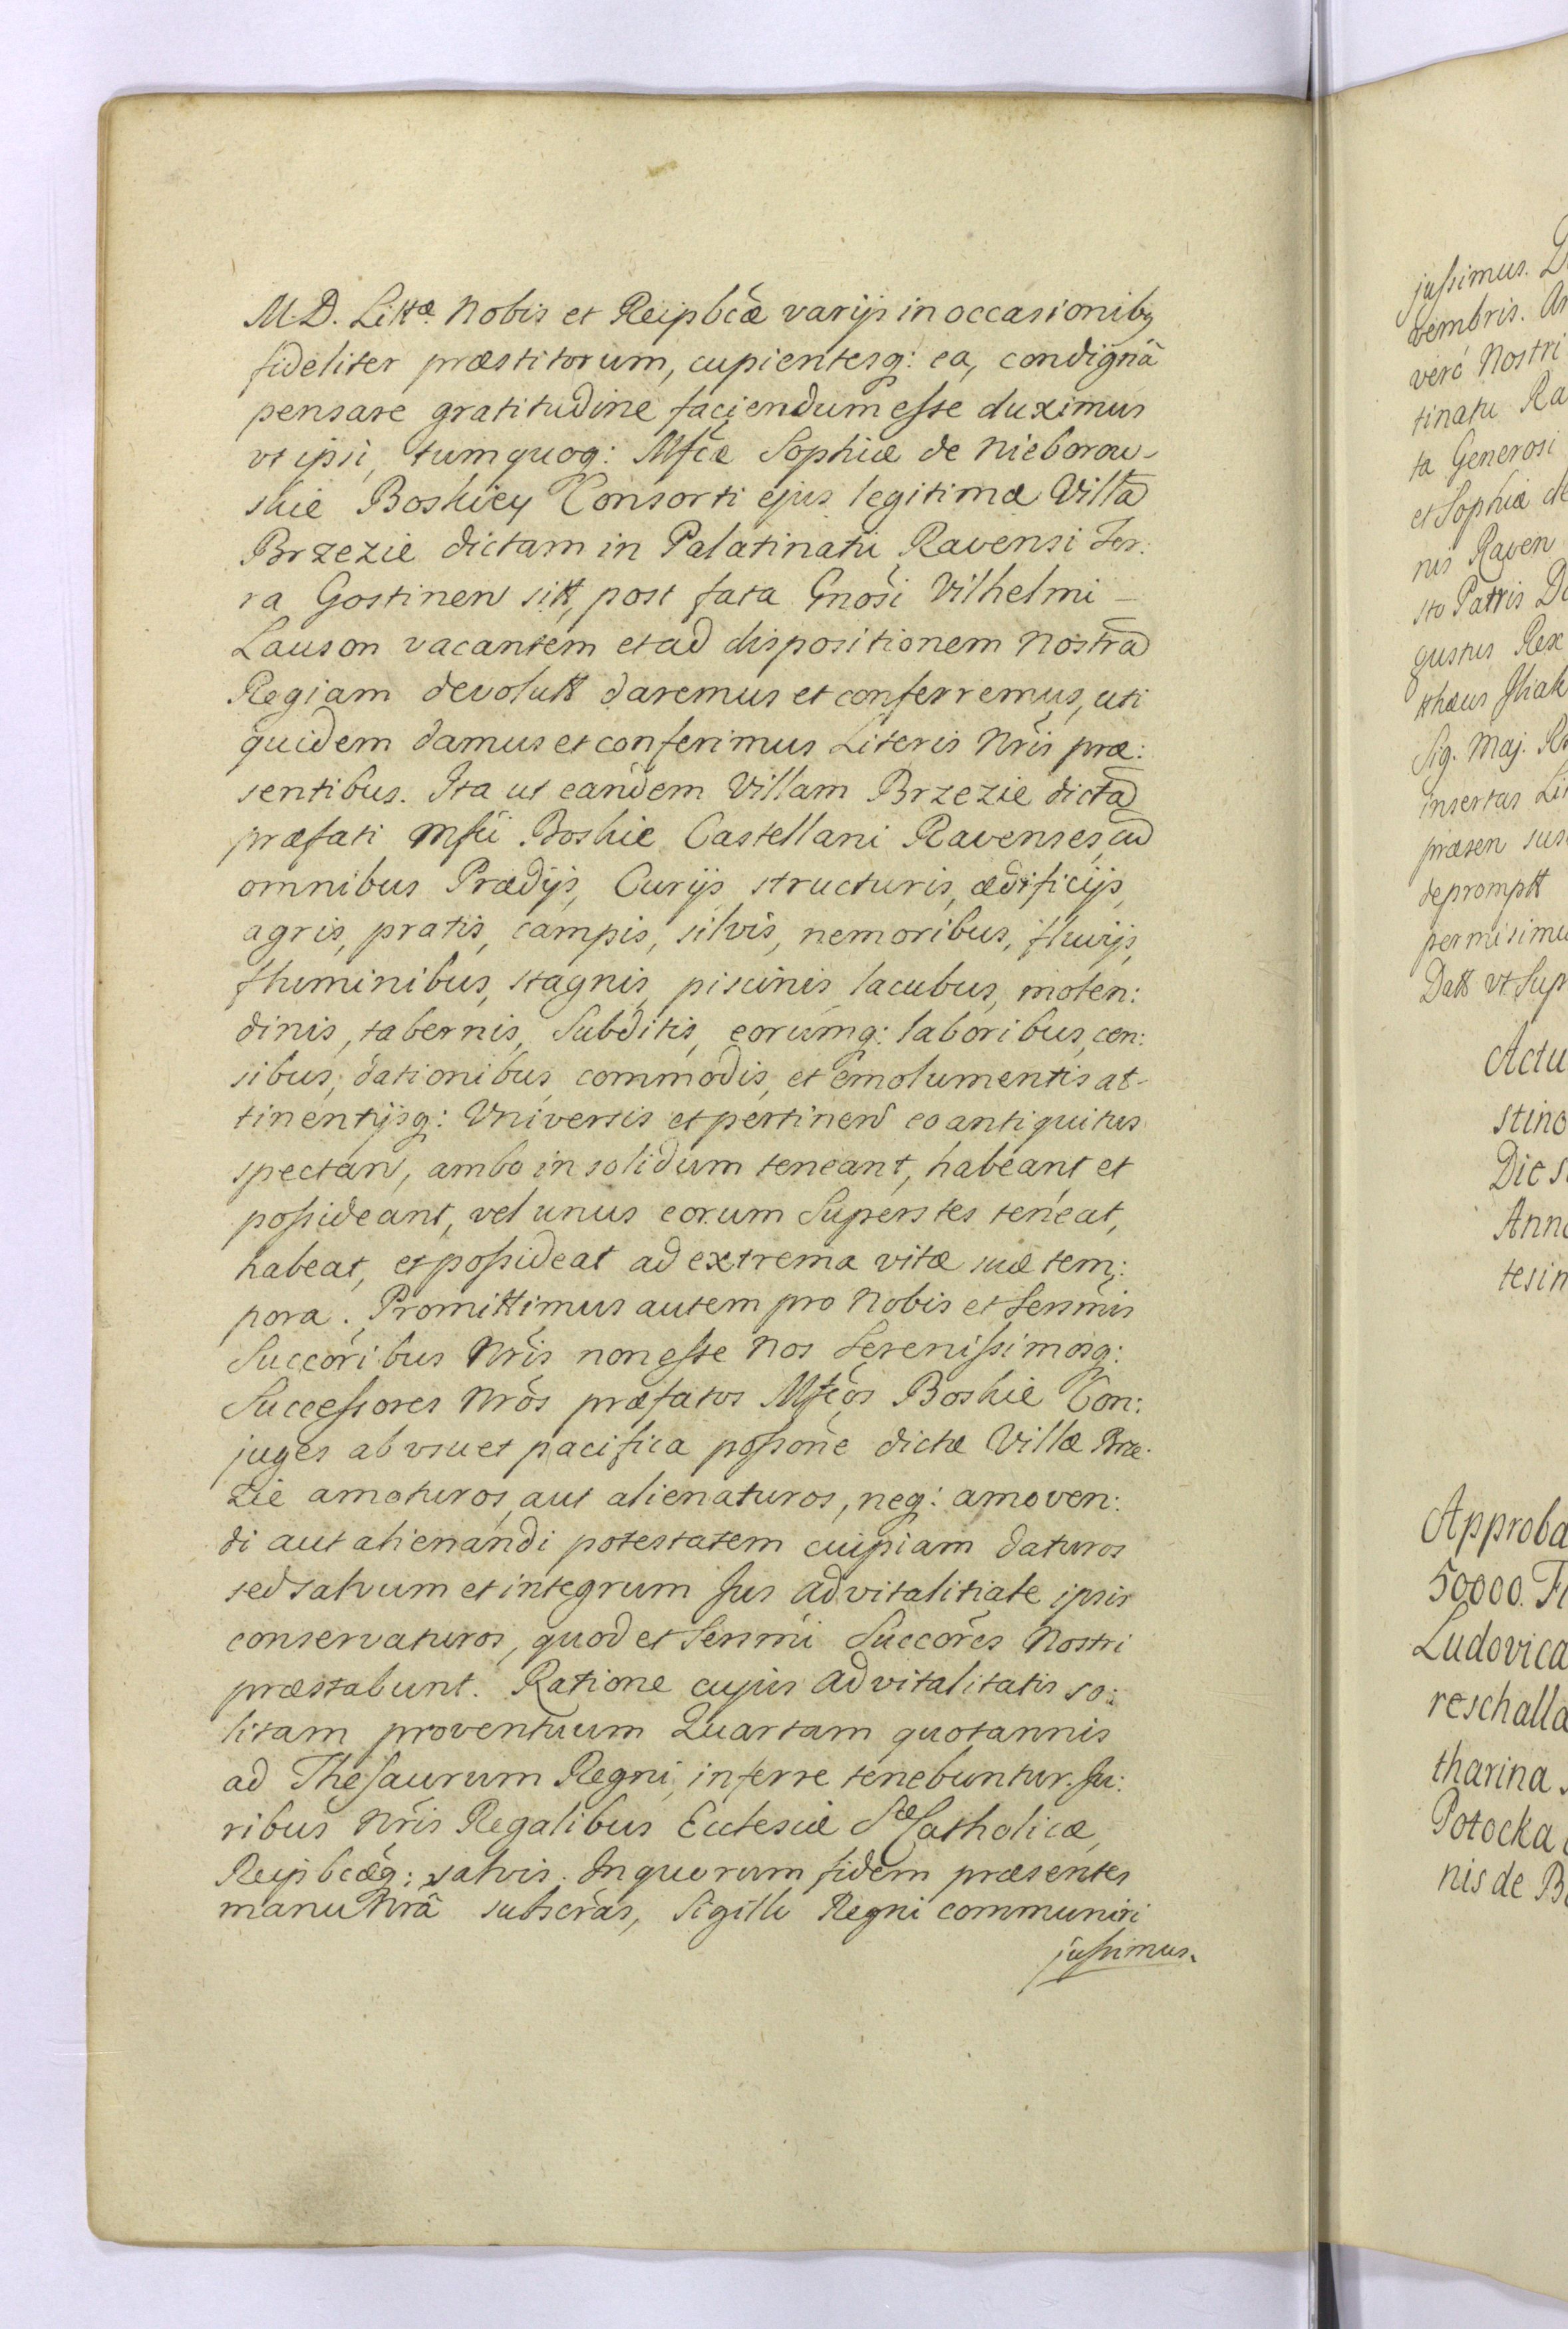 M.D. Littæ. Nobis et Reipbcæ varijs in occasionibq
fideliter præstitorum, cupientesq: ea, condignâ
pensare gratitudine faciendum esse duximus
vt ipsi, tum quoq: Mfcæ Sophiæ de Nieborow-
skie Boskiey Consorti ejus legitimæ Villã
Brzezie dictam in Palatinatu Ravensi Ter:
ra Gostinen sitt, post fata Gnosi Vilhelmi –
Lauson vacantem et ad dispositionem Nostrã
Regiam devolutt daremus et conferremus, uti
quidem damus et conferimus Literis Nris præ:
sentibus. Ita ut eandem Villam Brzezie dictã
præfati Mfci Boskie Castellani Ravenses, cũ
omnibus Prædijs, Curijs structuris, ædificijs,
agris, pratis, campis, silvis, nemoribus, fluvijs,
fluminibus, stagnis, piscinis lacubus, molen:
dinis, tabernis, Subditis, eorumq: laboribus, cen:
sibus, dationibus commodis, et emolumentis at-
tinentijsq: Vniversis et pertinen eo antiquitus
spectan, ambo in solidum teneant, habeant et
possideant, vel unus eorum Superstes teneat,
habeat, et possideat ad extrema vitæ suæ tem:
pora. Promittimus autem pro Nobis et Sersmis
Succoribus Nris non esse Nos Serenissimosq:
Successores Nros præfatos Mfcos Boskie Con:
juges ab vsu et pacifica possone dictæ Villæ Brze-
zie amoturos, aut alienaturos, neq: amoven:
di aut alienandi potestatem cuipiam daturos
sed salvum et integrum Jus advitalitiate ipsis
conservaturos, quod et Sersmi Succores Nostri
præstabunt. Ratione cujus advitalitatis so:
litam proventuum Quartam quotannis
ad Thesaurum Regni inferre tenebuntur. Ju:
ribus Nris Regalibus Ecclesiæ Sæ Catholicæ,
Reipbcæq: salvis. In quorum fidem præsentes
manu Nrâ subscras, Sigillo Regni communiri
jussimus.
jussimus.
vembris.
vero Nostri
tinatu Ra
ta Generosi
et Sophiæ de
nis Raven
sto Patris
gustus Rex
Sig. Maj.
insertas
præsen
depromptt
permisimu
Datt vt Sup
Actu
stino
Die
Anno
tesim
Approba
50000. Fl
Ludovica
reschalla
tharina
Potocka
nis de B